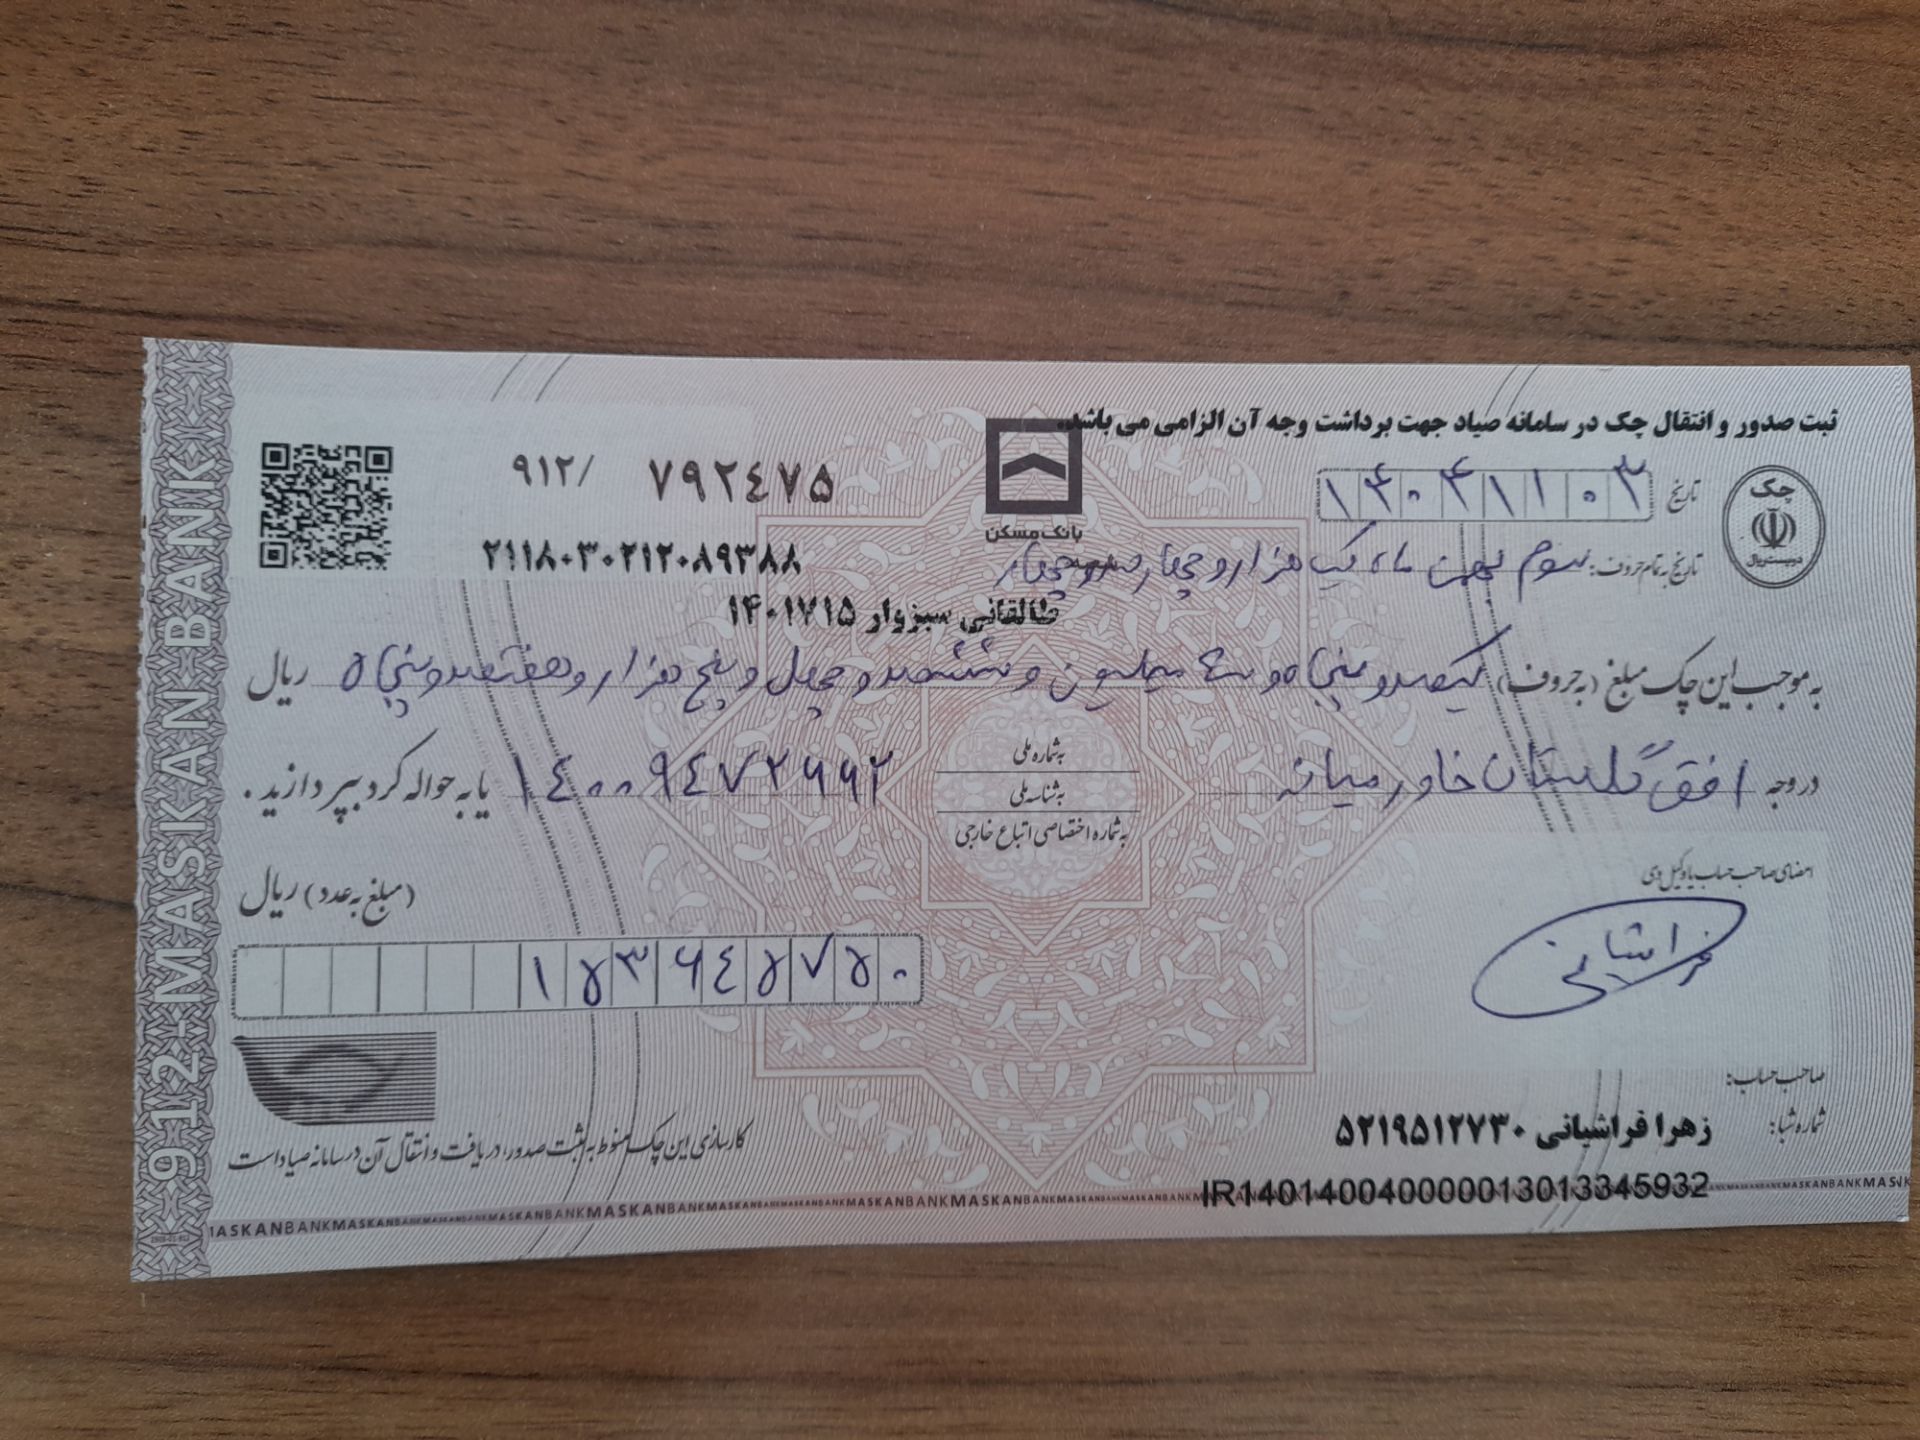 ثبت صدور و انتقال چک در سامانه صیاد جهت برداشت وجه آن الزامی می باشد.
چک
دویست ریال
تاریخ ۱۴۰۴۱۱۰۳
بانک مسکن
۹۱۲/ ۷۹۲۴۷۵
تاریخ به تمام حروف: سوم بهمن ماه یک هزار و چهارصد و چهار
۲۱۱۸۰۳۰۲۱۲۰۸۹۳۸۸
طالقانی سبزوار ۱۴۰۱۷۱۵
به موجب این چک مبلغ (به حروف) یکصد و پنجاه و سه میلیون و ششصد و چهل و پنج هزار و هفتصد و پنجاه ریال
در وجه افق گلستان خاورمیانه
به شماره ملی
به شناسه ملی
به شماره اختصاصی اتباع خارجی
۱۴۰۰۹۴۷۲۶۶۲ یا به حواله کرد بپردازید.
امضای صاحب حساب یا وکیل وی
فراشیانی
(مبلغ به عدد) ریال
۱۵۳۶۴۵۷۵۰
صاحب حساب:
شماره شبا:
زهرا فراشیانی ۵۲۱۹۵۱۲۷۳۰
IR140140040000013013345932
کارسازی این چک منوط به ثبت صدور، دریافت و انتقال آن در سامانه صیاد است
MASKANBANKMASKANBANKMASKANBANKMASKANBANKMASKANBANKMASKANBANKMASKANBANK
912 MASKAN BANK 912 MASKAN BANK